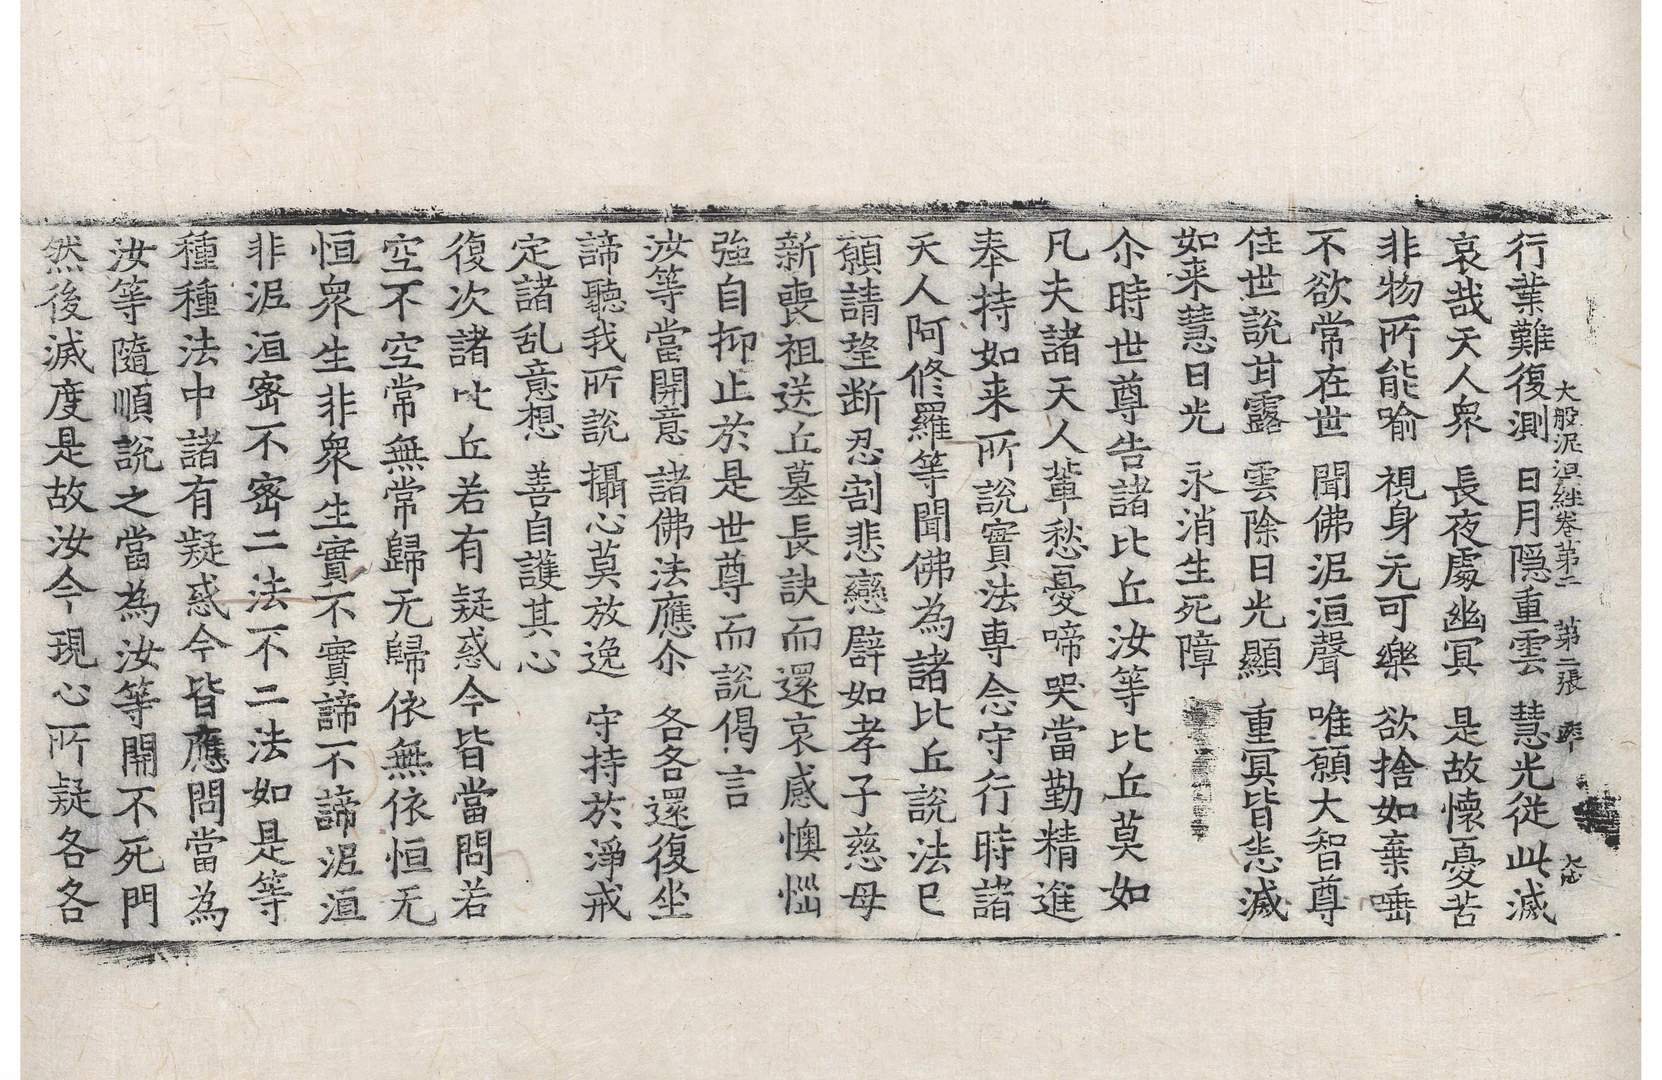 大般泥洹経卷第二 第二張
行業難復測 日月隐重雲 慧光從此滅
哀哉天人衆 長夜處幽冥 是故懷憂苦
非物所能喻 視身无可樂 欲捨如棄唾
不欲常在世 聞佛泥洹聲 唯願大智尊
住世說甘露 雲除日光顯 重冥皆悉滅
如来慧日光 永消生死障
尒時世尊告諸比丘汝等比丘莫如
凡夫諸天人輩愁憂啼哭當勤精進
奉持如来所說實法專念守行時諸
天人阿修羅等聞佛為諸比丘說法已
願請望断忍割悲戀辟如孝子慈母
新喪祖送丘墓長訣而還哀感懊惱
強自抑止於是世尊而說偈言
汝等當開意 諸佛法應尒 各各還復坐
諦聽我所說 攝心莫放逸 守持於淨戒
定諸乱意想 善自護其心
復次諸比丘若有疑惑今皆當問若
空不空常無常歸无歸依無依恒无
恒衆生非衆生實不實諦不諦泥洹
非泥洹密不密二法不二法如是等
種種法中諸有疑惑今皆應問當為
汝等隨順說之當為汝等開不死門
然後滅度是故汝今現心所疑各各